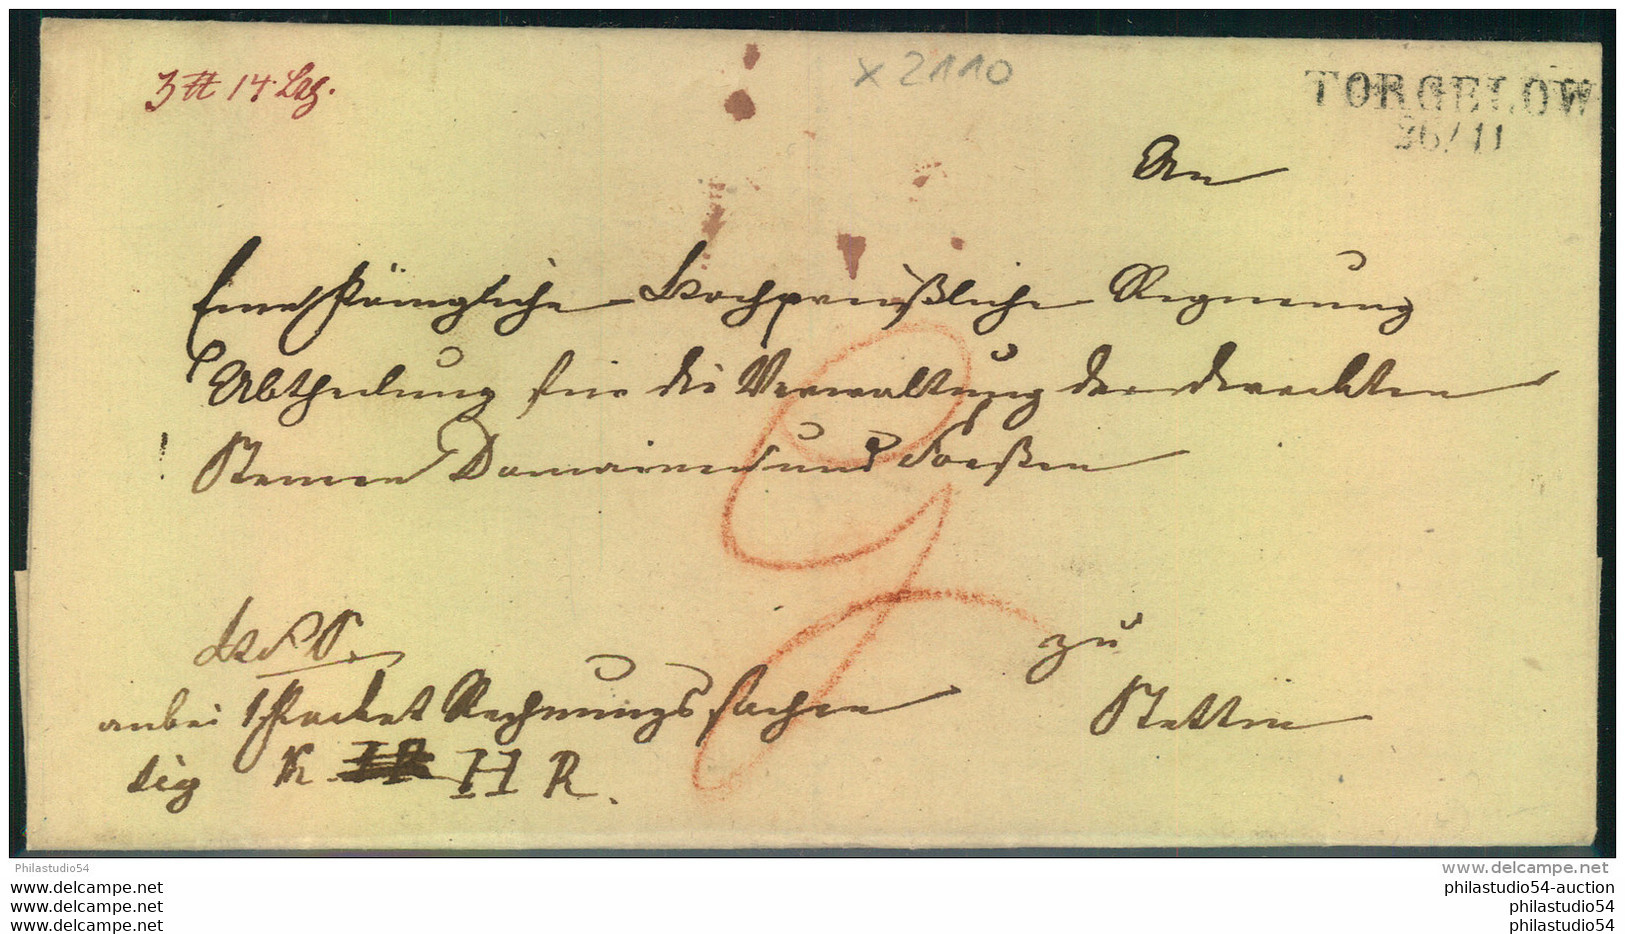 3 ℔ 14 Lth.
x 2110
TORGELOW
26/11
An
Eine Königliche Hochpreußliche Regierung
Abtheilung für die Verwaltung der directen
Steuern Domainen und Forsten
zu
Stettin
anbei 1 Packet Rechnungssachen
sig K. H R.
Philastudio54
www.delcampe.net
www.delcampe.net
www.delcampe.net
www.delcampe.net
philastudio54-auction
philastudio54
philastudio54